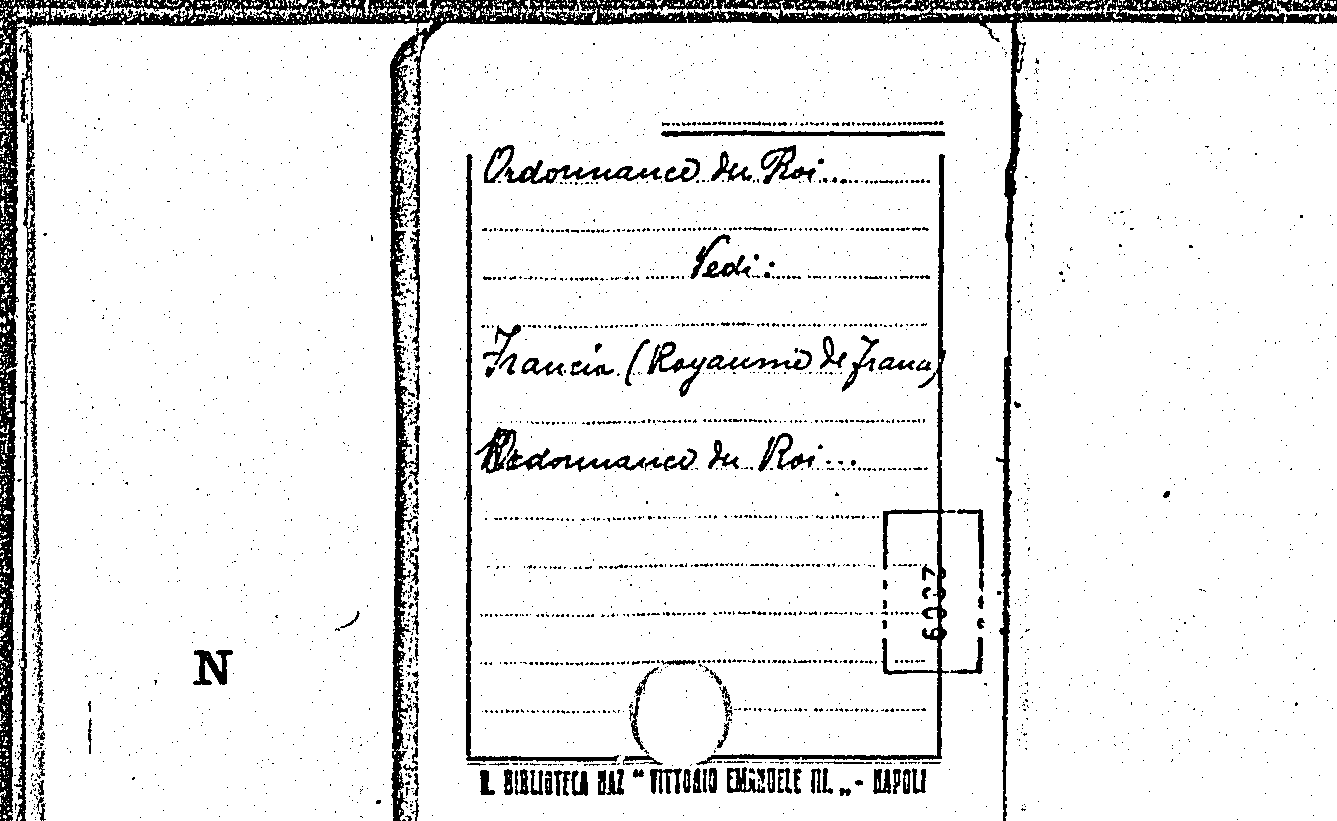 Ordonnance du Roi...
Vedi:
Francia (Royaume de France)
Ordonnance du Roi...
N
R. BIBLIOTECA NAZ " VITTORIO EMANUELE III. „ - NAPOLI